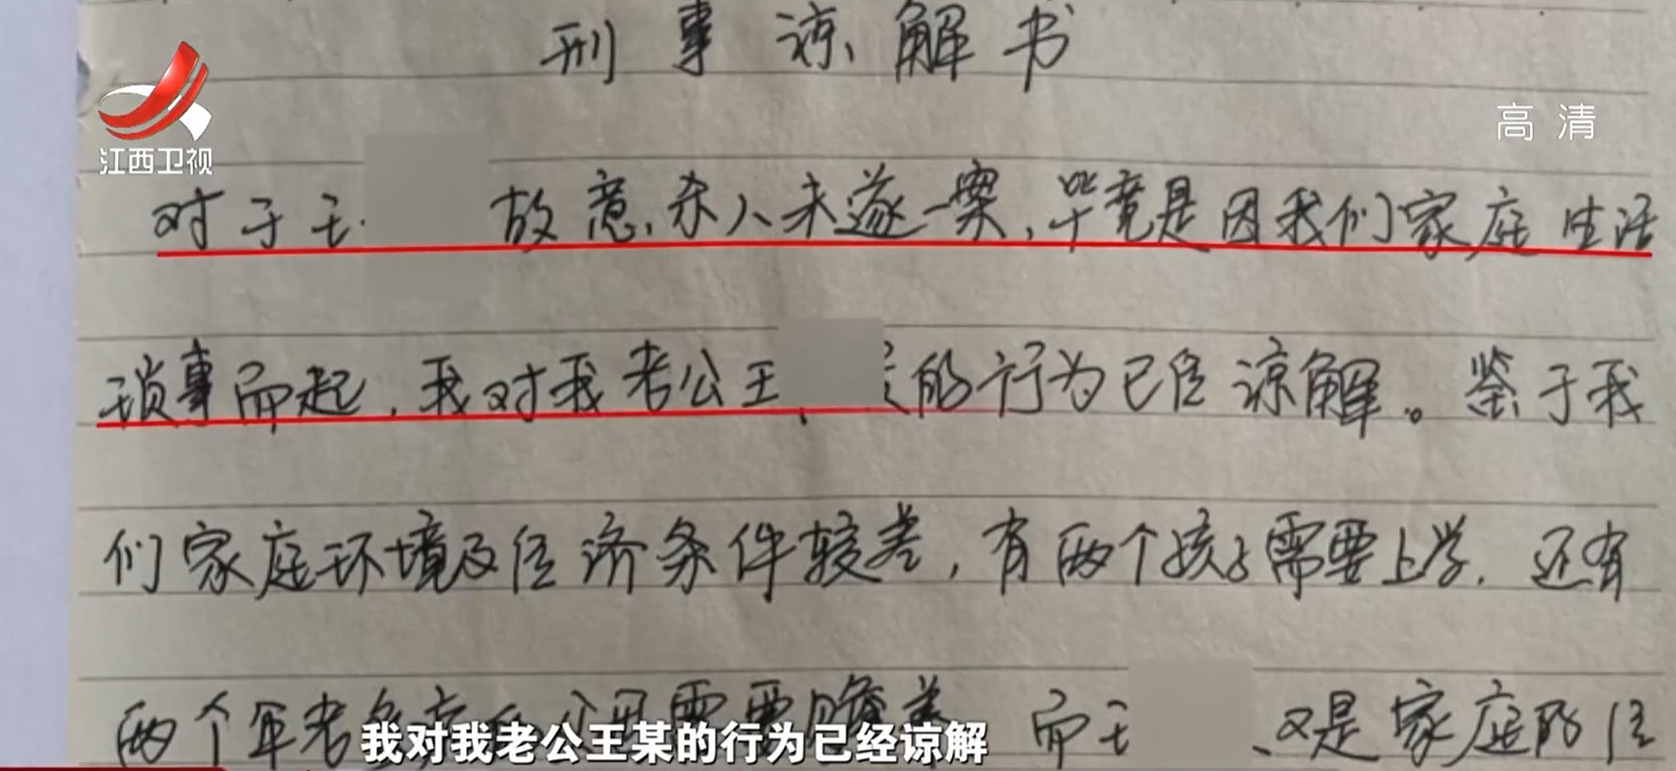 刑事谅解书
江西卫视
高清
对于王 故意杀人未遂一案,毕竟是因我们家庭生活
琐事而起,我对我老公王 的行为已经谅解。鉴于我
们家庭环境及经济条件较差,有两个孩子需要上学,还有
两个年老 需要赡养 而王 又是家庭的经
我对我老公王某的行为已经谅解